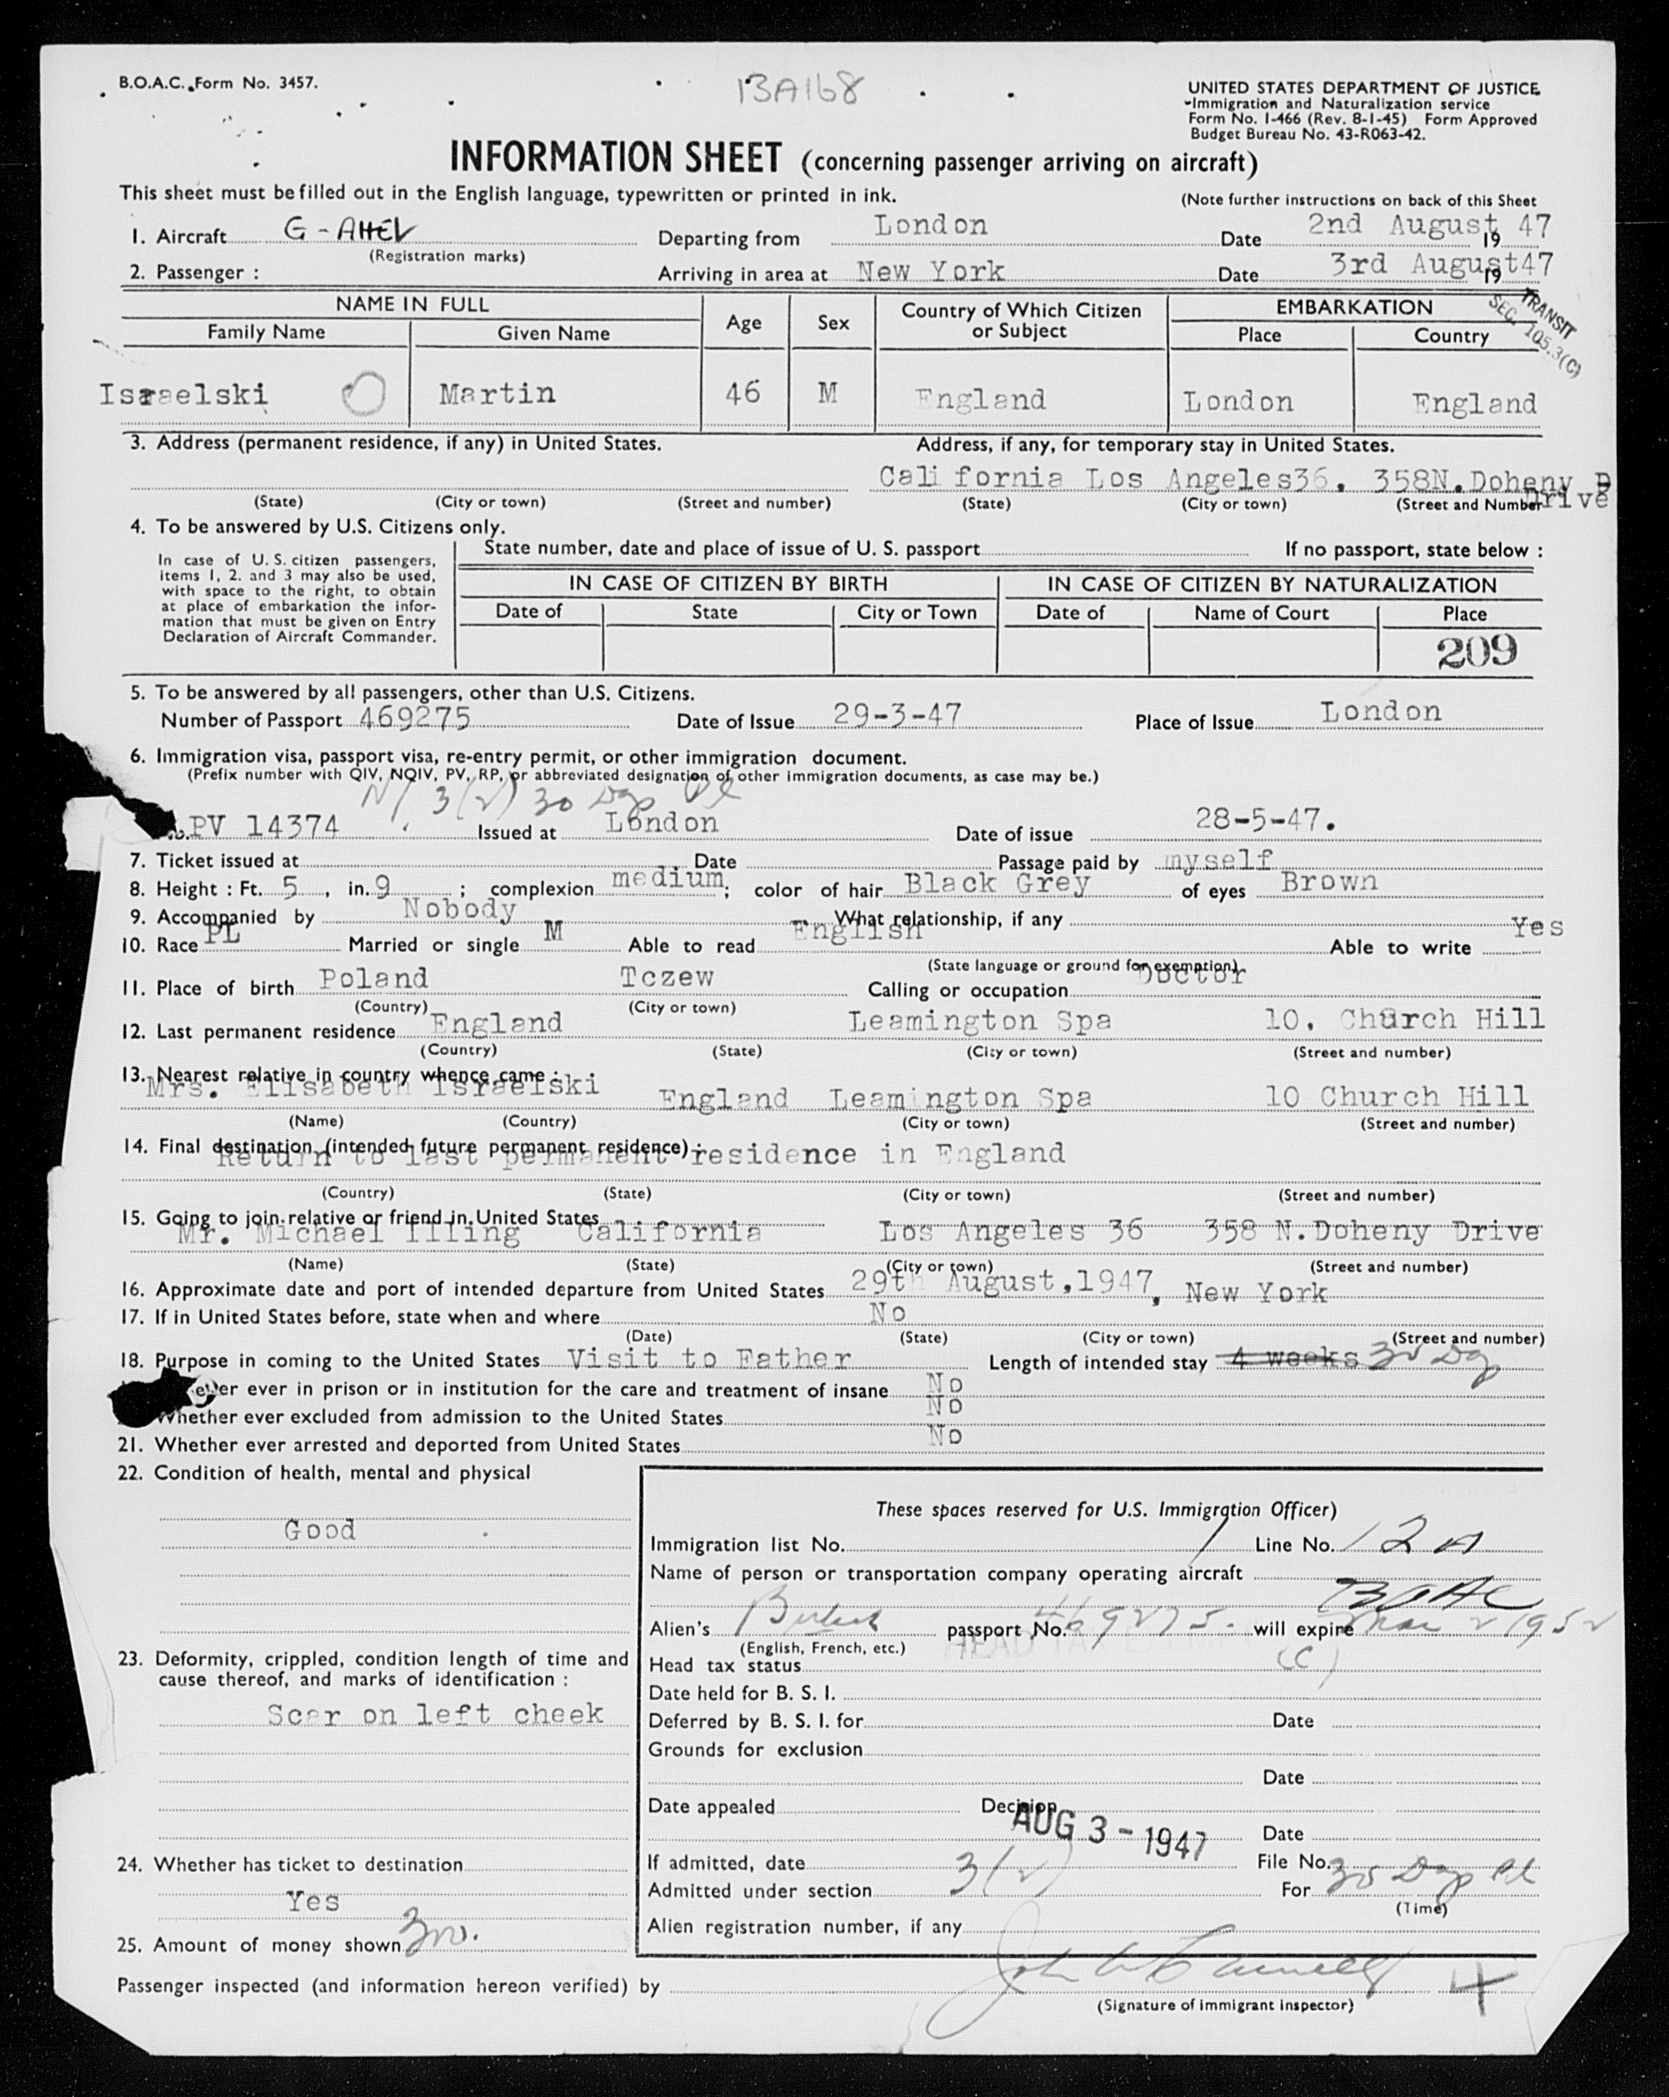 B.O.A.C. Form No. 3457.
13A168
UNITED STATES DEPARTMENT OF JUSTICE
Immigration and Naturalization service
Form No. I-466 (Rev. 8-1-45) Form Approved
Budget Bureau No. 43-R063-42.
INFORMATION SHEET (concerning passenger arriving on aircraft)
This sheet must be filled out in the English language, typewritten or printed in ink.
(Note further instructions on back of this Sheet
1. Aircraft G-AHEL Departing from London Date 2nd August 19 47
(Registration marks)
2. Passenger : Arriving in area at New York Date 3rd August 19 47
TRANSIT
SEC. 105.3(C)
NAME IN FULL Age Sex Country of Which Citizen or Subject EMBARKATION
Family Name Given Name Place Country
Israelski Martin 46 M England London England
3. Address (permanent residence, if any) in United States. Address, if any, for temporary stay in United States.
California Los Angeles36. 358N.Doheny D
Drive
(State) (City or town) (Street and number) (State) (City or town) (Street and Number
4. To be answered by U.S. Citizens only.
In case of U. S. citizen passengers,
items 1, 2. and 3 may also be used,
with space to the right, to obtain
at place of embarkation the infor-
mation that must be given on Entry
Declaration of Aircraft Commander.
State number, date and place of issue of U. S. passport If no passport, state below :
IN CASE OF CITIZEN BY BIRTH IN CASE OF CITIZEN BY NATURALIZATION
Date of State City or Town Date of Name of Court Place
209
5. To be answered by all passengers, other than U.S. Citizens.
Number of Passport 469275 Date of Issue 29-3-47 Place of Issue London
6. Immigration visa, passport visa, re-entry permit, or other immigration document.
(Prefix number with QIV, NQIV, PV, RP, or abbreviated designation of other immigration documents, as case may be.)
3(2) 30 Day
PV 14374 Issued at London Date of issue 28-5-47.
7. Ticket issued at Date Passage paid by myself
8. Height : Ft. 5, in. 9 ; complexion medium; color of hair Black Grey of eyes Brown
9. Accompanied by Nobody What relationship, if any
10. Race PL Married or single M Able to read English Able to write Yes
(State language or ground for exemption)
11. Place of birth Poland Tczew Calling or occupation Doctor
(Country) (City or town)
12. Last permanent residence England Leamington Spa 10, Church Hill
(Country) (State) (City or town) (Street and number)
13. Nearest relative in country whence came :
Mrs. Elisabeth Israelski England Leamington Spa 10 Church Hill
(Name) (Country) (City or town) (Street and number)
14. Final destination (intended future permanent residence) :
Return to last permanent residence in England
(Country) (State) (City or town) (Street and number)
15. Going to join relative or friend in United States
Mr. Michael Illing California Los Angeles 36 358 N.Doheny Drive
(Name) (State) (City or town) (Street and number)
16. Approximate date and port of intended departure from United States 29th August,1947, New York
17. If in United States before, state when and where No
(Date) (State) (City or town) (Street and number)
18. Purpose in coming to the United States Visit to Father Length of intended stay 4 weeks 30 Day
ether ever in prison or in institution for the care and treatment of insane No
Whether ever excluded from admission to the United States No
21. Whether ever arrested and deported from United States No
22. Condition of health, mental and physical
Good
23. Deformity, crippled, condition length of time and
cause thereof, and marks of identification :
Scar on left cheek
24. Whether has ticket to destination
Yes
25. Amount of money shown
These spaces reserved for U.S. Immigration Officer)
Immigration list No. 1 Line No. 12A
Name of person or transportation company operating aircraft
BOAC
Alien's British passport No. 469275. will expire Mar 2 1952
(English, French, etc.)
Head tax status (C)
Date held for B. S. I.
Deferred by B. S. I. for Date
Grounds for exclusion
Date
Date appealed Decision
AUG 3 - 1947
Date
If admitted, date File No.
Admitted under section 3(2) For 30 Day
(Time)
Alien registration number, if any
Passenger inspected (and information hereon verified) by
(Signature of immigrant inspector)
4